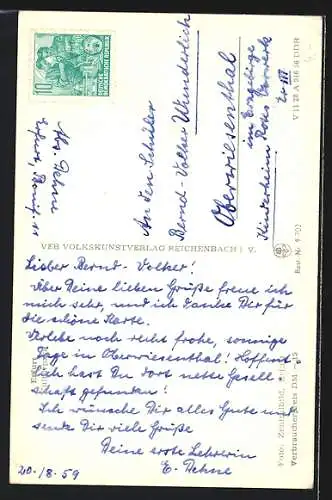 Lieber Bernd-Volker!
Über Deine lieben Grüße freue ich
mich sehr, und ich danke Dir für
die schöne Karte.
Verlebe noch recht frohe, sonnige
Tage in Oberwiesenthal! Hoffent-
lich hast Du dort nette Gesell-
schaft gefunden!
Ich wünsche Dir alles Gute und
sende Dir viele Grüße
Deine erste Lehrerin
E. Dehne
20./8.59
Abs. Dehne
Erfurt,
An den Schüler
Bernd-Volker Wunderlich
Oberwiesenthal
im Erzgebirge
Kinderheim Rotes Vorwerk
VEB VOLKSKUNSTVERLAG REICHENBACH i. V.
10
DEUTSCHE
DEMOKRATISCHE REPUBLIK
V 11 28 A 216 56 DDR
Best.-Nr.
Erfurt
Foto: Zentralbild,
Verbraucherpreis DM